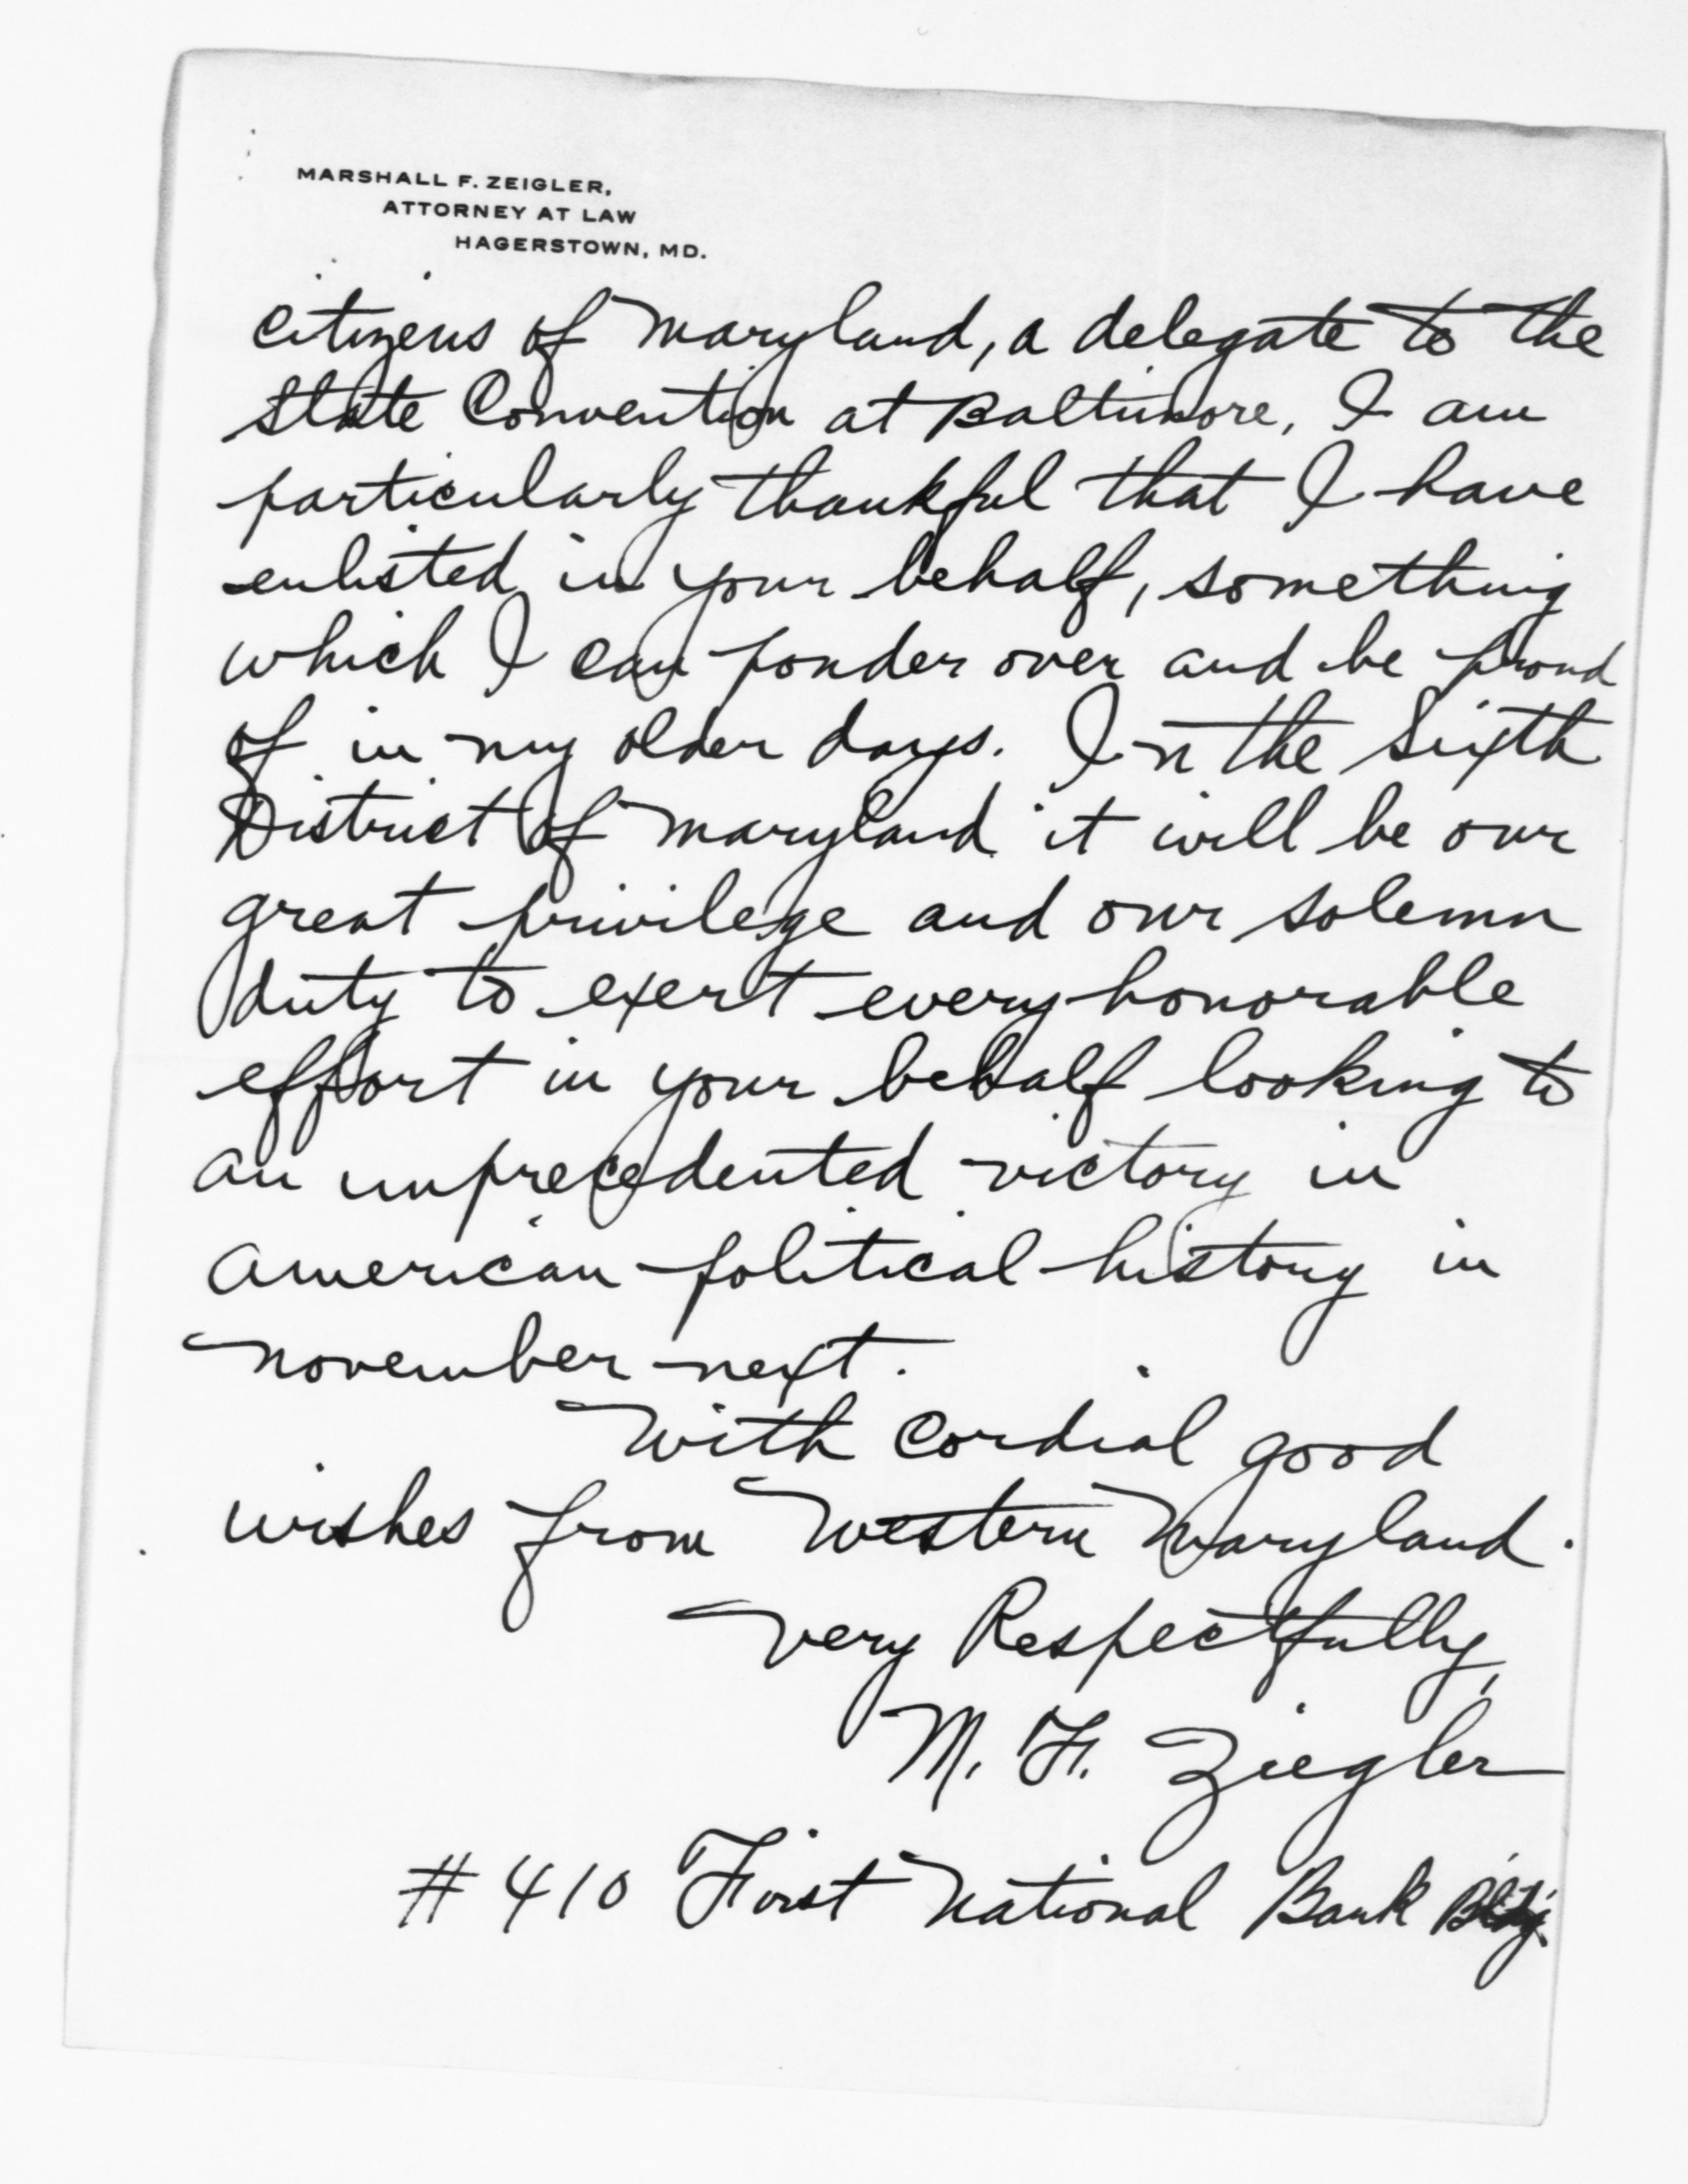 MARSHALL F. ZEIGLER,
ATTORNEY AT LAW
HAGERSTOWN, MD.
citizens of Maryland, a delegate to the
State Convention at Baltimore, I am
particularly thankful that I have
enlisted in your behalf, something
which I can ponder over and be proud
of in my older days. In the Sixth
District of Maryland it will be our
great privilege and our solemn
duty to exert every honorable
effort in your behalf looking to
an unprecedented victory in
American political history in
November next.
With cordial good
wishes from Western Maryland.
Very Respectfully,
M. F. Ziegler
# 410 First National Bank Bldg.